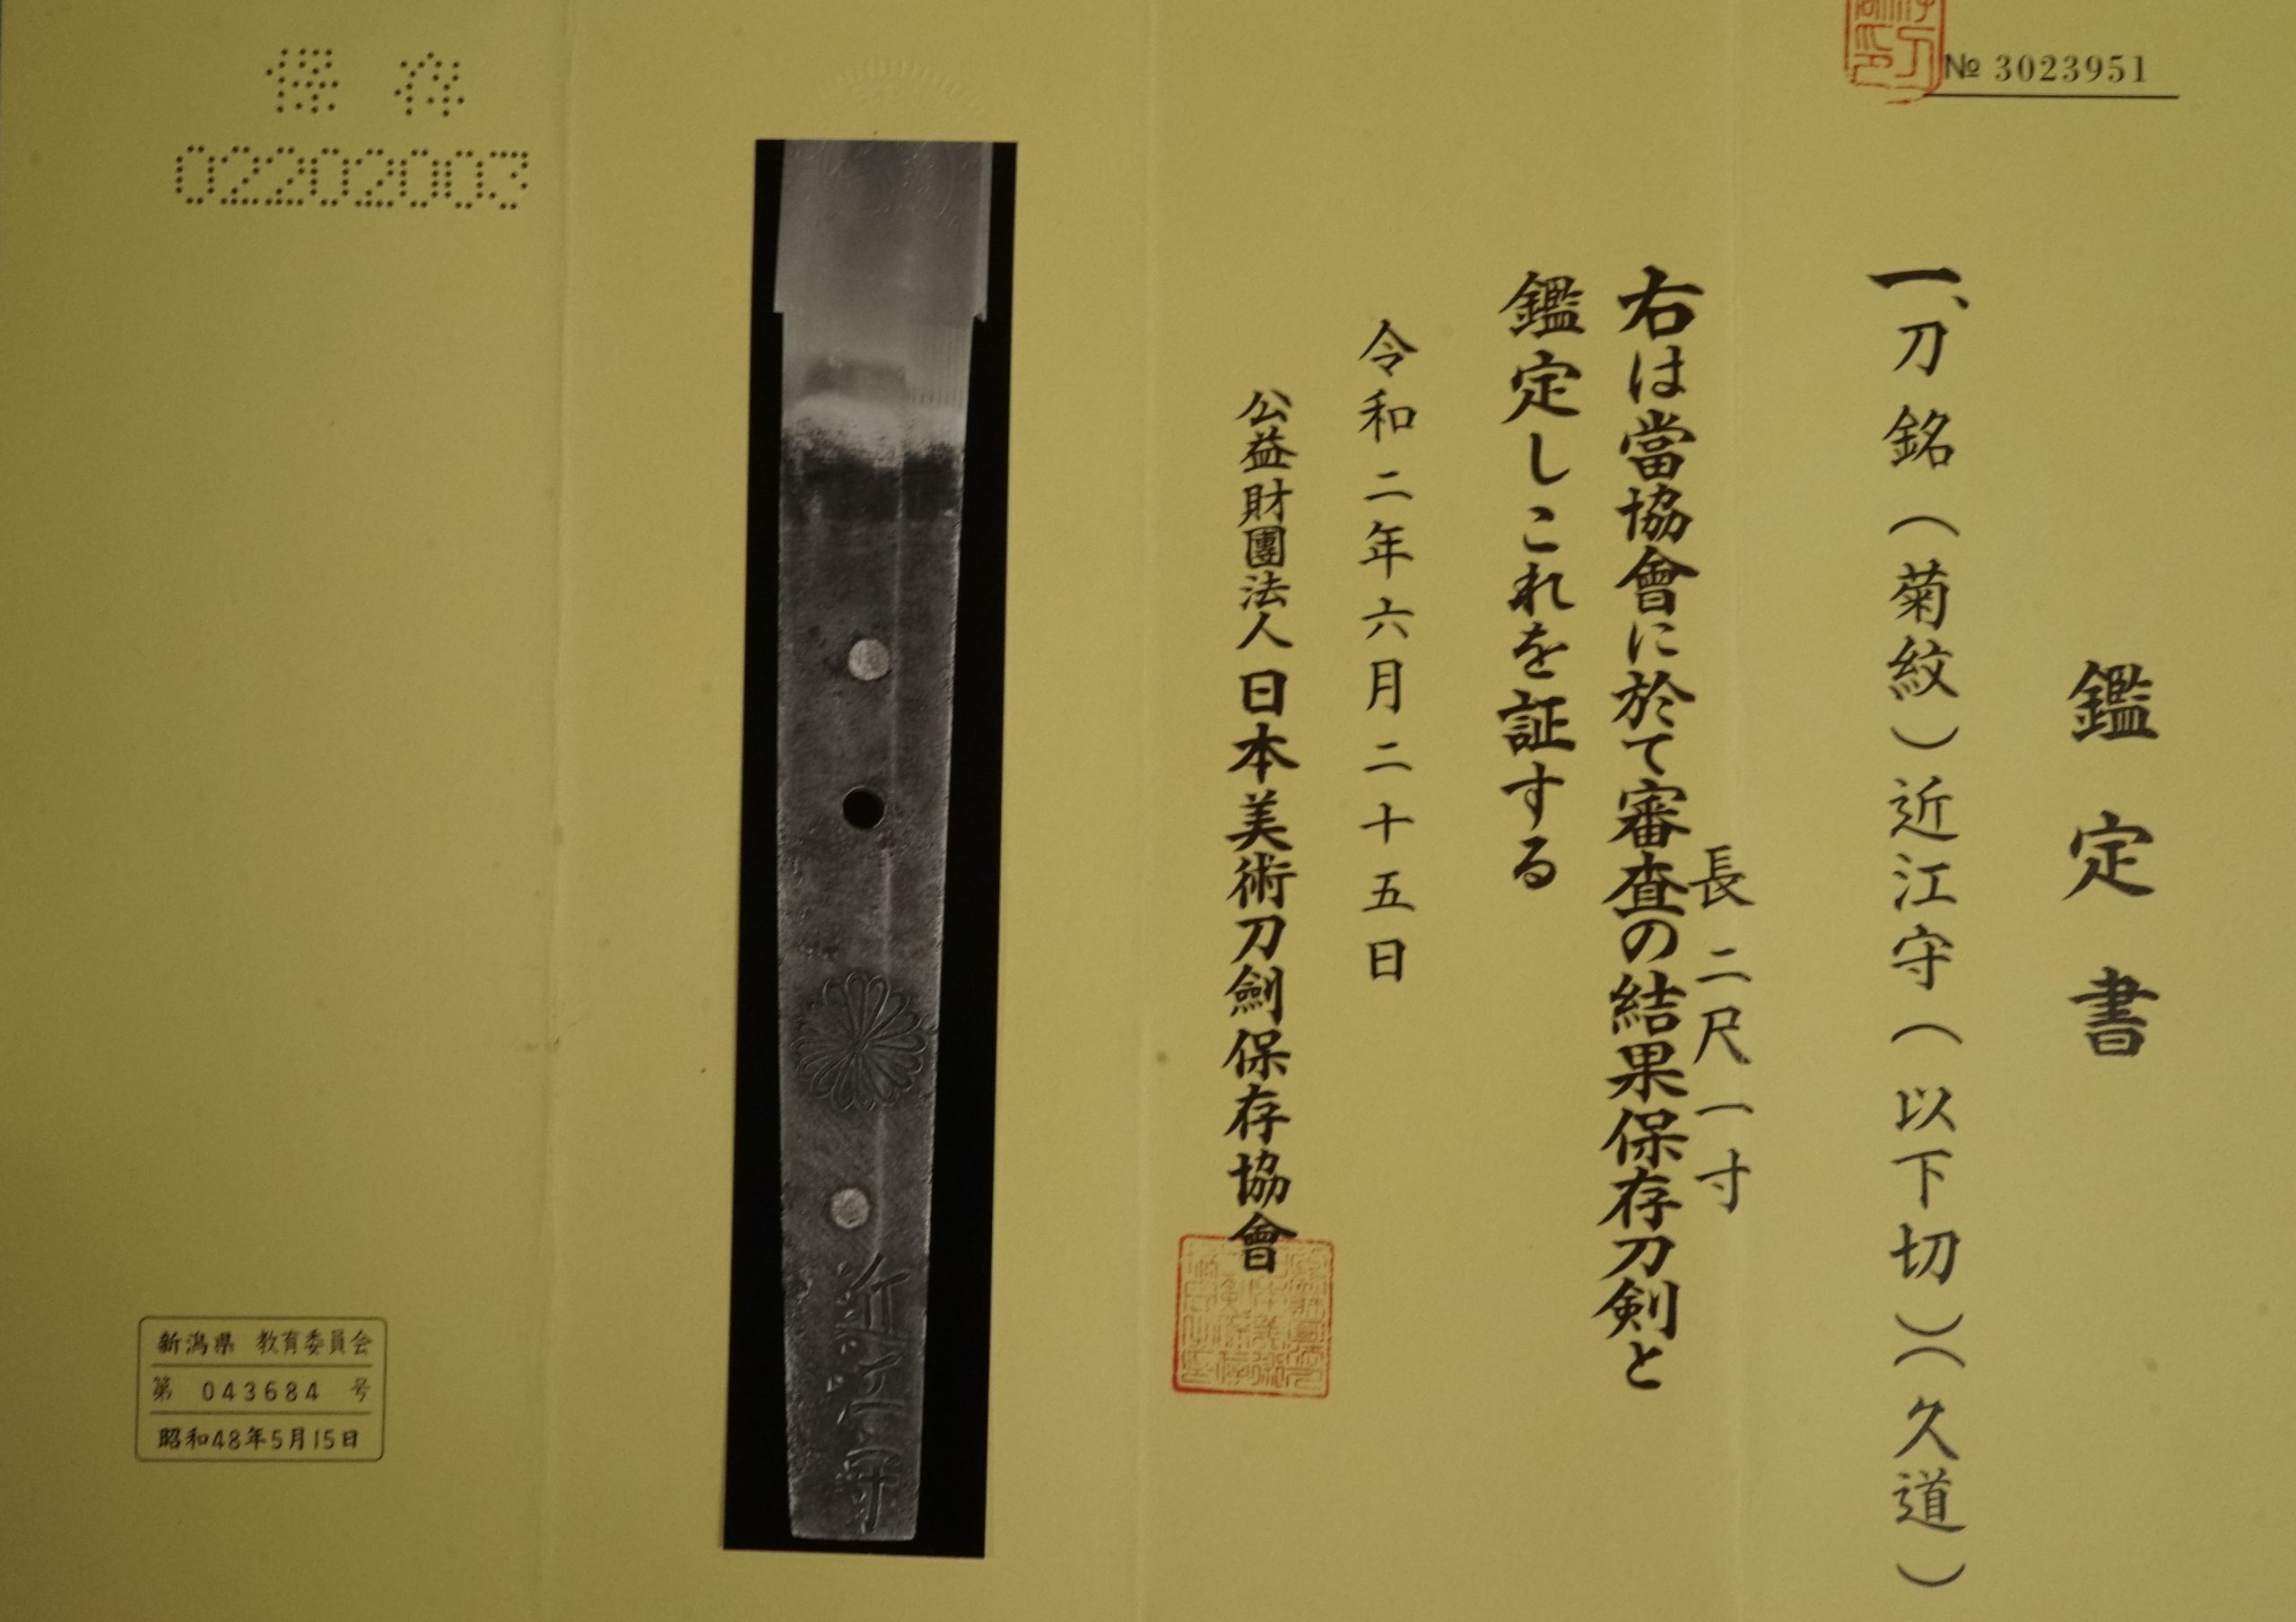 № 3023951
鑑定書
一、刀 銘(菊紋)近江守(以下切)(久道)
長 二尺一寸
右は當協會に於て審査の結果保存刀剣と
鑑定しこれを証する
令和二年六月二十五日
公益財團法人 日本美術刀劍保存協會
近江守
保存
02202003
新潟県 教育委員会
第 043684 号
昭和48年5月15日